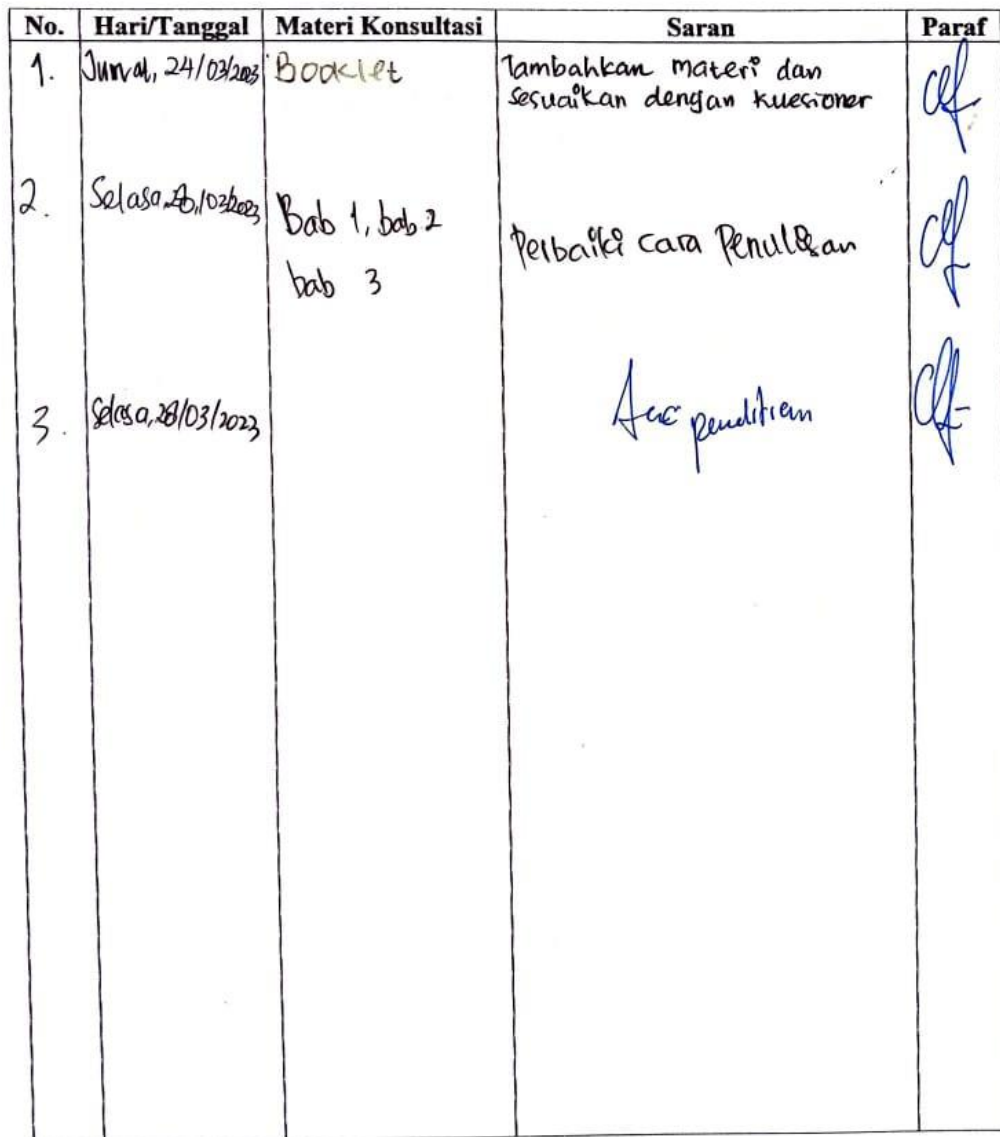 No. Hari/Tanggal Materi Konsultasi Saran Paraf
1. Jum'at, 24/03/2023 Booklet Tambahkan materi dan
sesuaikan dengan kuesioner
2. Selasa, /03/2023 Bab 1, bab 2 Perbaiki cara Penulisan
bab 3
3. Selasa, 28/03/2023 Acc penelitian